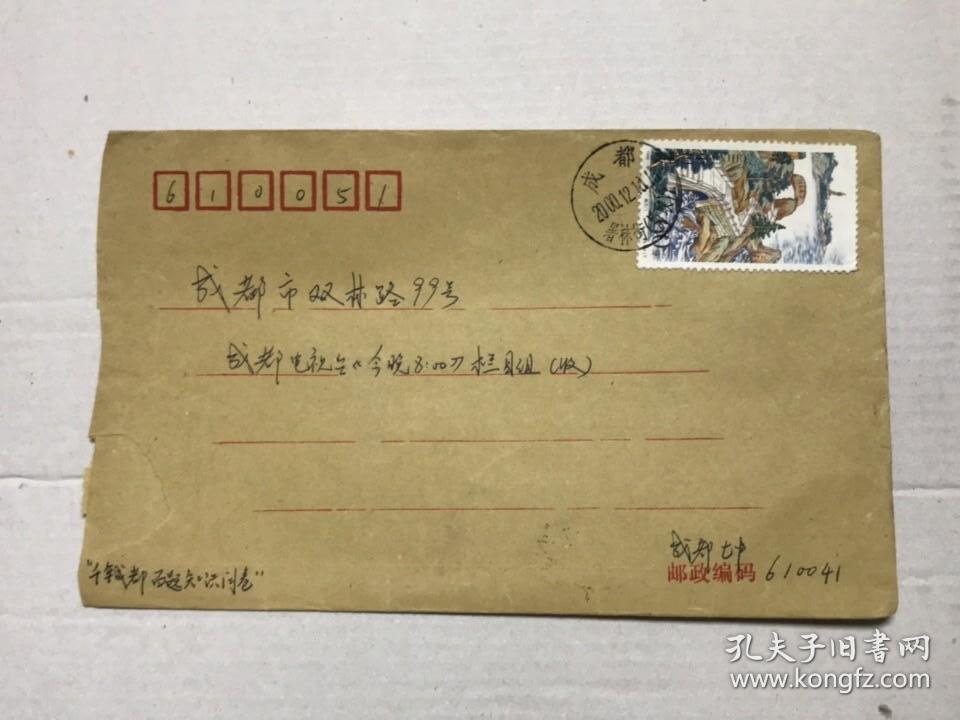 610051
成都
2000.12.10
成都市双林路99号
成都电视台《今晚8:00》栏目组(收)
成都七中
邮政编码 610041
“千年成都百题知识问卷”
孔夫子旧书网
www.kongfz.com